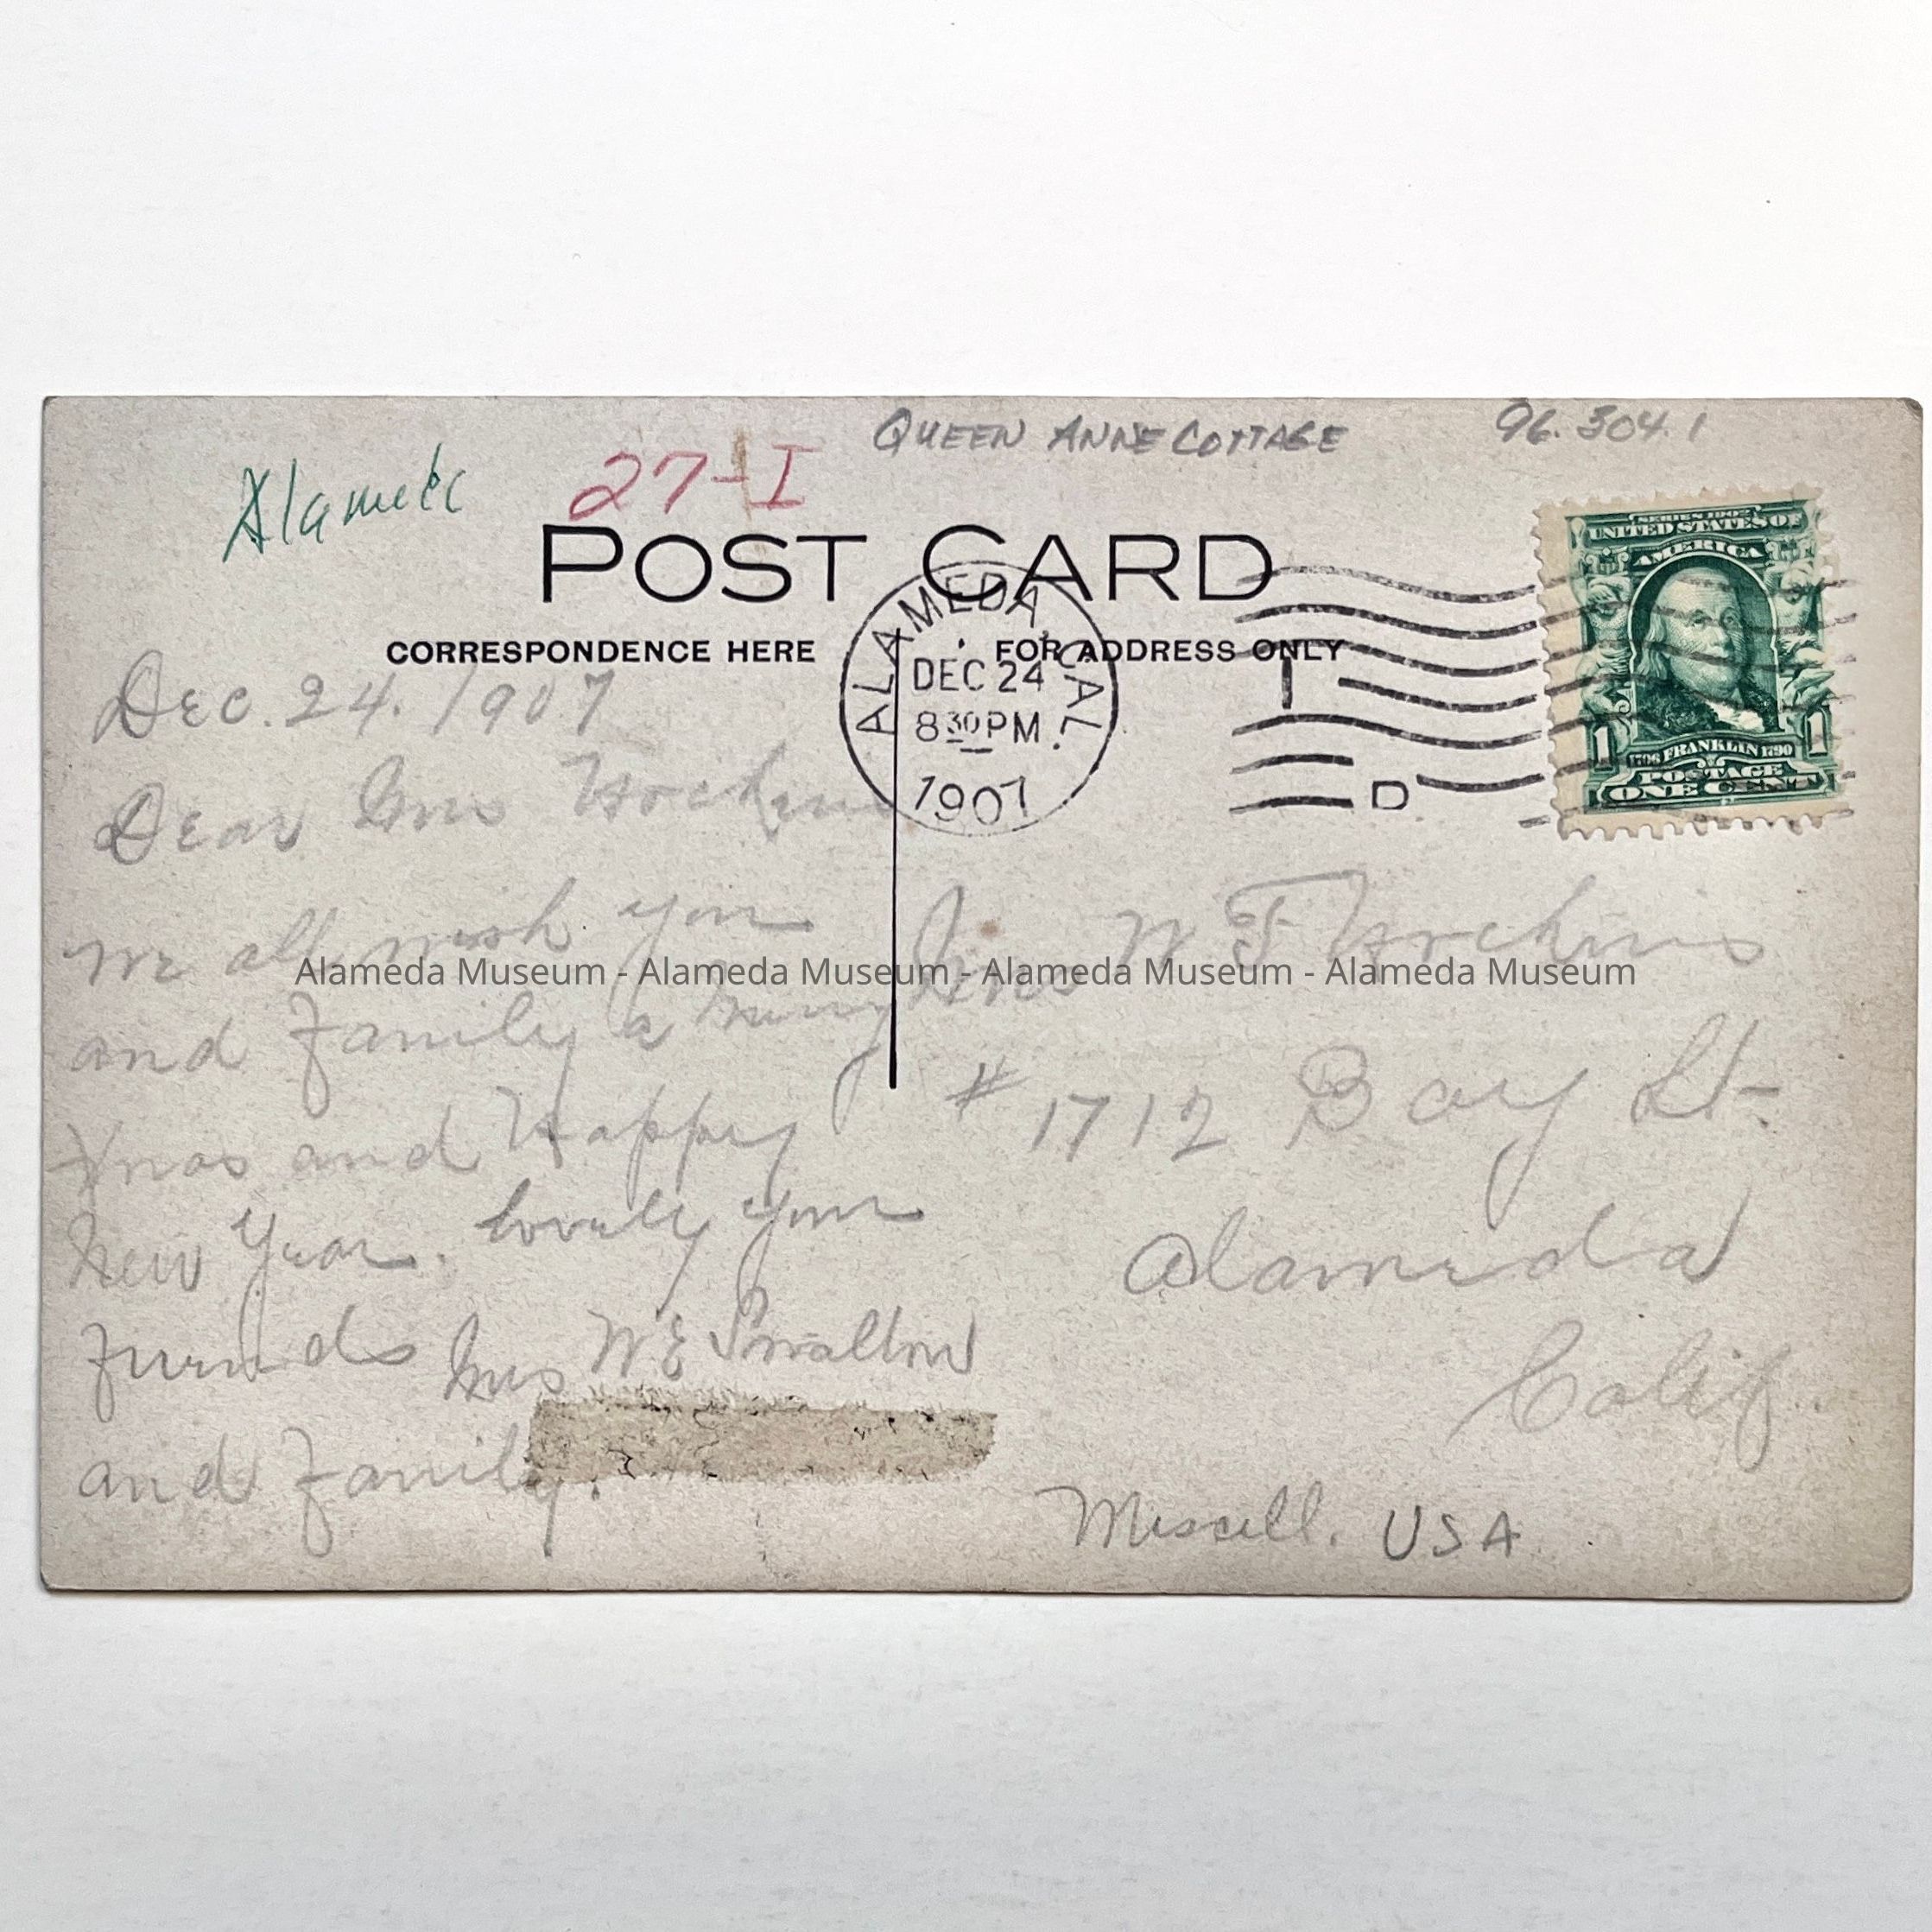 QUEEN ANNE COTTAGE
96.304.1
Alameda
27-I
POST CARD
CORRESPONDENCE HERE
FOR ADDRESS ONLY
ALAMEDA, CAL.
DEC 24
8 30 PM
1907
I
D
SERIES 1902
UNITED STATES OF
AMERICA
1 1
FRANKLIN 1790
1706
POSTAGE
ONE CENT
Dec. 24. 1907
Dear Mrs Hockins
We all wish you
and Family a Merry
Xmas and Happy
New Year. Lovely your
Friends Mrs W E Smallow
and Family.
Mrs W F Hockins
# 1712 Bay St-
Alameda
Calif.
Miscell. USA
Alameda Museum - Alameda Museum - Alameda Museum - Alameda Museum